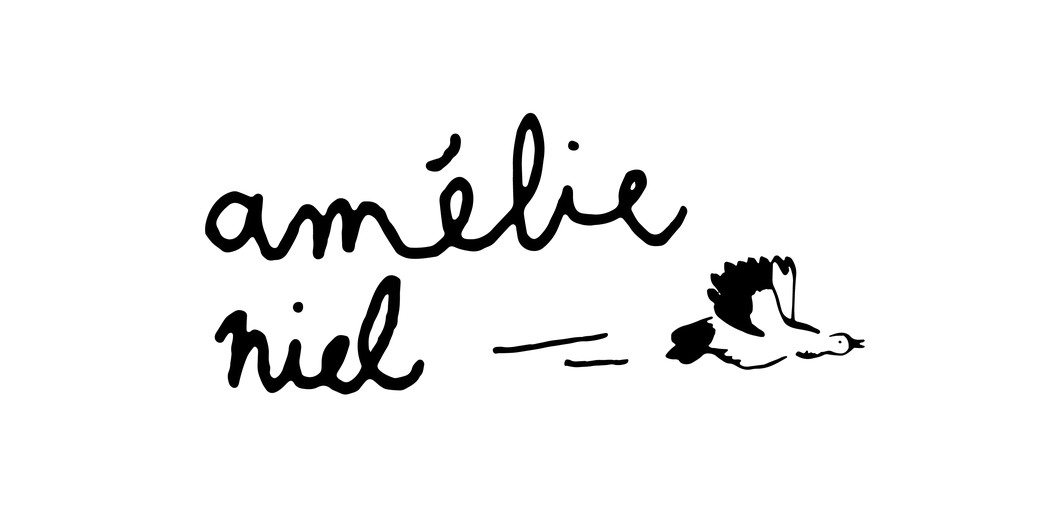 amélie
niel